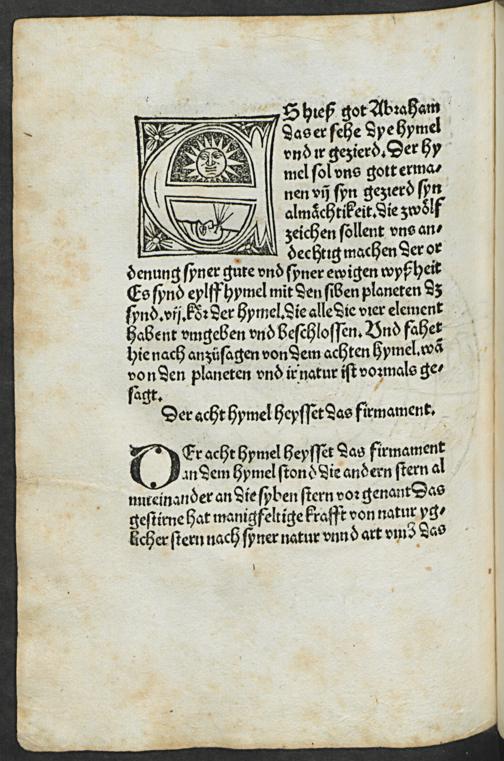 ES hieß got Abraham
das er sehe dye hymel
vnd ir gezierd. Der hy
mel sol vns gott erma⸗
nen vñ syn gezierd syn
almächtikeit. die zwölf
zeichen sollent vns an⸗
dechtig machen der or
denung syner güte vnd syner ewigen wyßheit
Es synd eylff hymel mit den siben planeten dz
synd .vij. kör der hymel. die alle die vier element
habent vmgeben vnd beschlossen. Vnd fahet
hie nach anzüsagen von dem achten hymel. wā
von den planeten vnd ir natur ist vormals ge⸗
sagt.
Der acht hymel heysset das firmament.
DEr acht hymel heysset das firmament
an dem hymel stond die andern stern al
mit einander an die syben stern vor genant Das
gestirne hat manigfeltige krafft von natur yg⸗
licher stern nach syner natur vnnd art vmb das